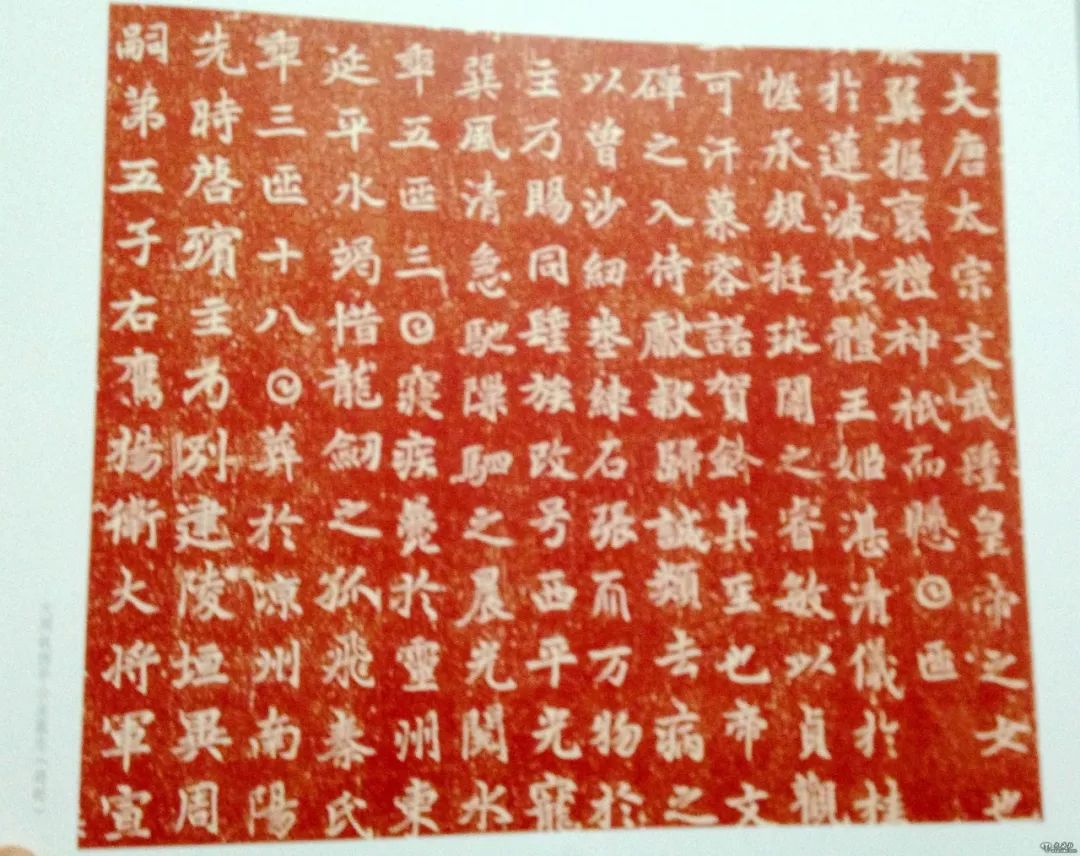 大唐太宗文武聖皇帝之女也
翼握褱禮神祇而懸〇𠥱
於蓮波託體王姬湛清儀於桂
幄承規挺琁閨之睿敏以貞觀
可汗慕容諾賀鉢其至也帝文
磾之入侍獻款歸誠類去病之
以曾沙紉婺練石張而万物於
主乃賜同聖族改号西平光寵
巽風清急馳隟駟之晨光閱水
𠡦五𠥱三〇寢疾薨於靈州東
延平水竭惜龍劒之孤飛秦氏
𠡦三𠥱十八〇葬於涼州南陽
先時啓殯主乃別建陵垣異周
嗣第五子右鷹揚衛大將軍宣